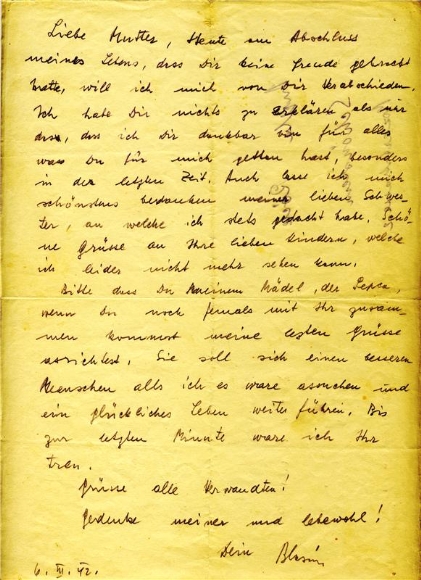 Liebe Mutter, Heute am Abschluss
meines Lebens, dass Dir keine Freude gebracht
hatte, will ich mich von Dir verabschieden.
Ich habe Dir nichts zu erklären als nur
dass, das ich Dir dankbar bin für alles
was Du für mich getten hast, besonders
in der letzten Zeit. Auch lasse ich mich
schönstens bedanken meiner lieben Schwes-
ter, an welche ich stets gedacht habe, Schö-
ne Grüsse an Ihre lieben Kindern, welche
ich leider nicht mehr sehen kann.
Bitte dass Du meinem Mädel, der
wenn Du noch jemals mit Ihr zusam-
men kommst meine lezten Grüsse
ausrichtest, Sie soll sich einen besseren
Menschen alls ich es ware aussuchen und
ein glückliches Leben weiter führen. Bis
zur letzten Minute ware ich Ihr
treu.
Grüsse alle Verwandten!
Gedenke meiner und lebewohl!
Dein
42.